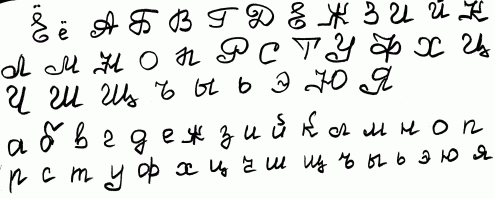 Ё ё А Б В Г Д Е Ж З И Й К
Л М Н О П Р С Т У Ф Х Ц
Ч Ш Щ Ъ Ы Ь Э Ю Я
а б в г д е ж з и й к л м н о п
р с т у ф х ц ч ш щ ъ ы ь э ю я